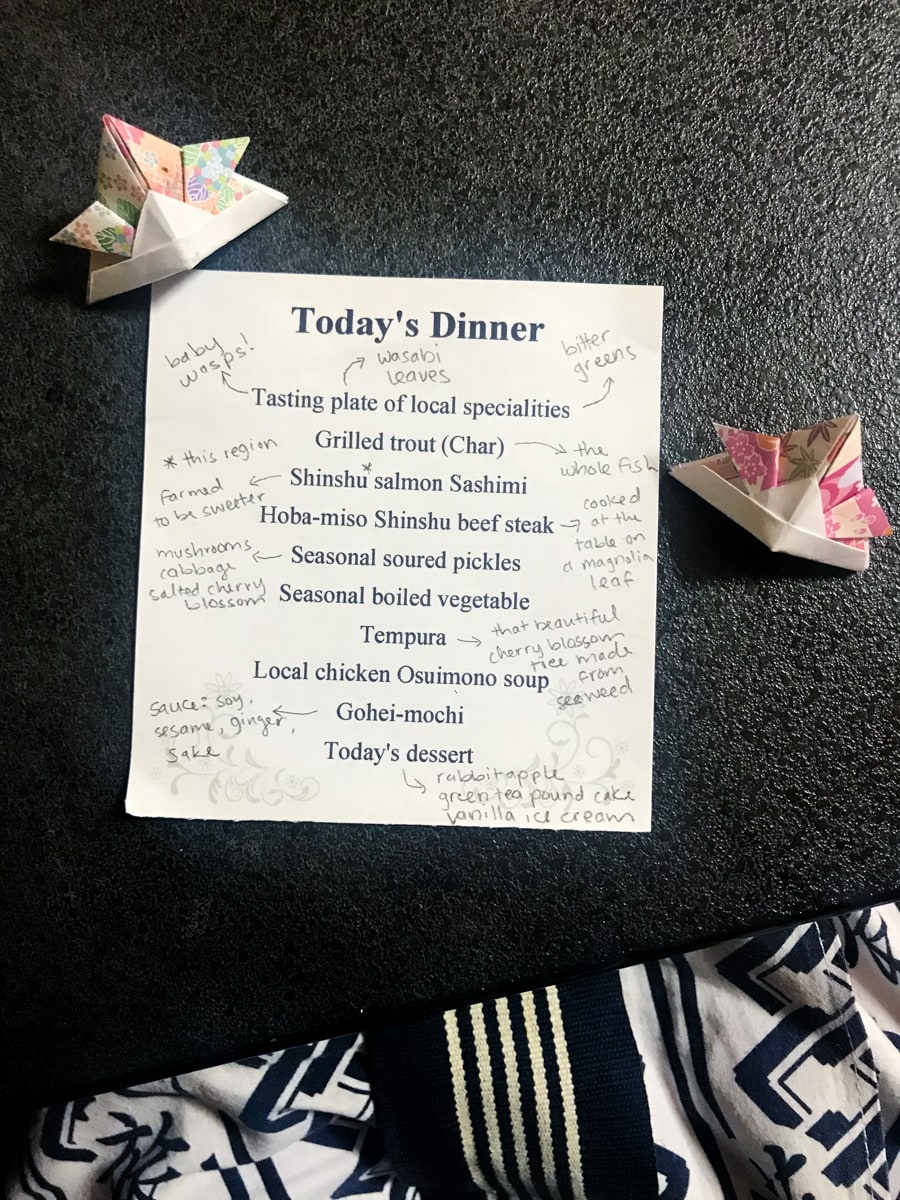 Today's Dinner
baby
wasps!
wasabi
leaves
bitter
greens
Tasting plate of local specialities
Grilled trout (Char)
the
whole fish
* this region
Shinshu* salmon Sashimi
farmed
to be sweeter
Hoba-miso Shinshu beef steak
cooked
at the
table on
a magnolia
leaf
Seasonal soured pickles
mushrooms
cabbage
salted cherry
blossom
Seasonal boiled vegetable
Tempura
that beautiful
cherry blossom
tree made
from
seaweed
Local chicken Osuimono soup
Gohei-mochi
sauce: soy,
sesame, ginger,
sake
Today's dessert
rabbit apple
green tea pound cake
vanilla ice cream
旅